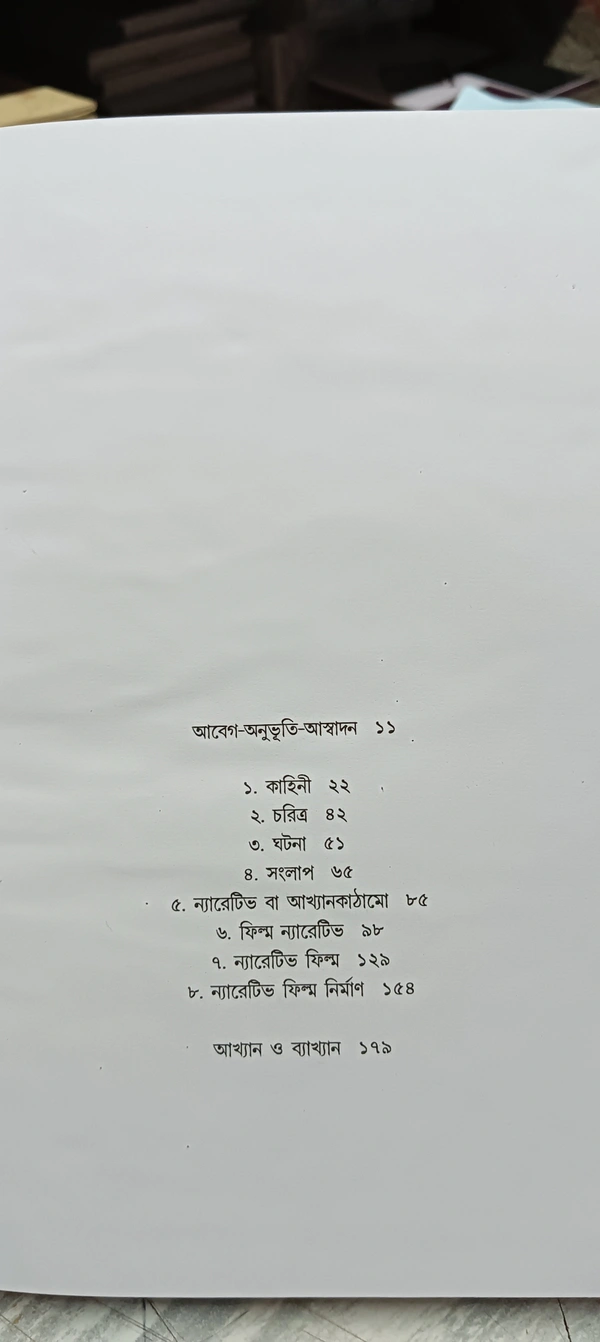 আবেগ-অনুভূতি-আস্বাদন ১১
১. কাহিনী ২২
২. চরিত্র ৪২
৩. ঘটনা ৫১
৪. সংলাপ ৬৫
৫. ন্যারেটিভ বা আখ্যানকাঠামো ৮৫
৬. ফিল্ম ন্যারেটিভ ৯৮
৭. ন্যারেটিভ ফিল্ম ১২৯
৮. ন্যারেটিভ ফিল্ম নির্মাণ ১৫৪
আখ্যান ও ব্যাখ্যান ১৭৯